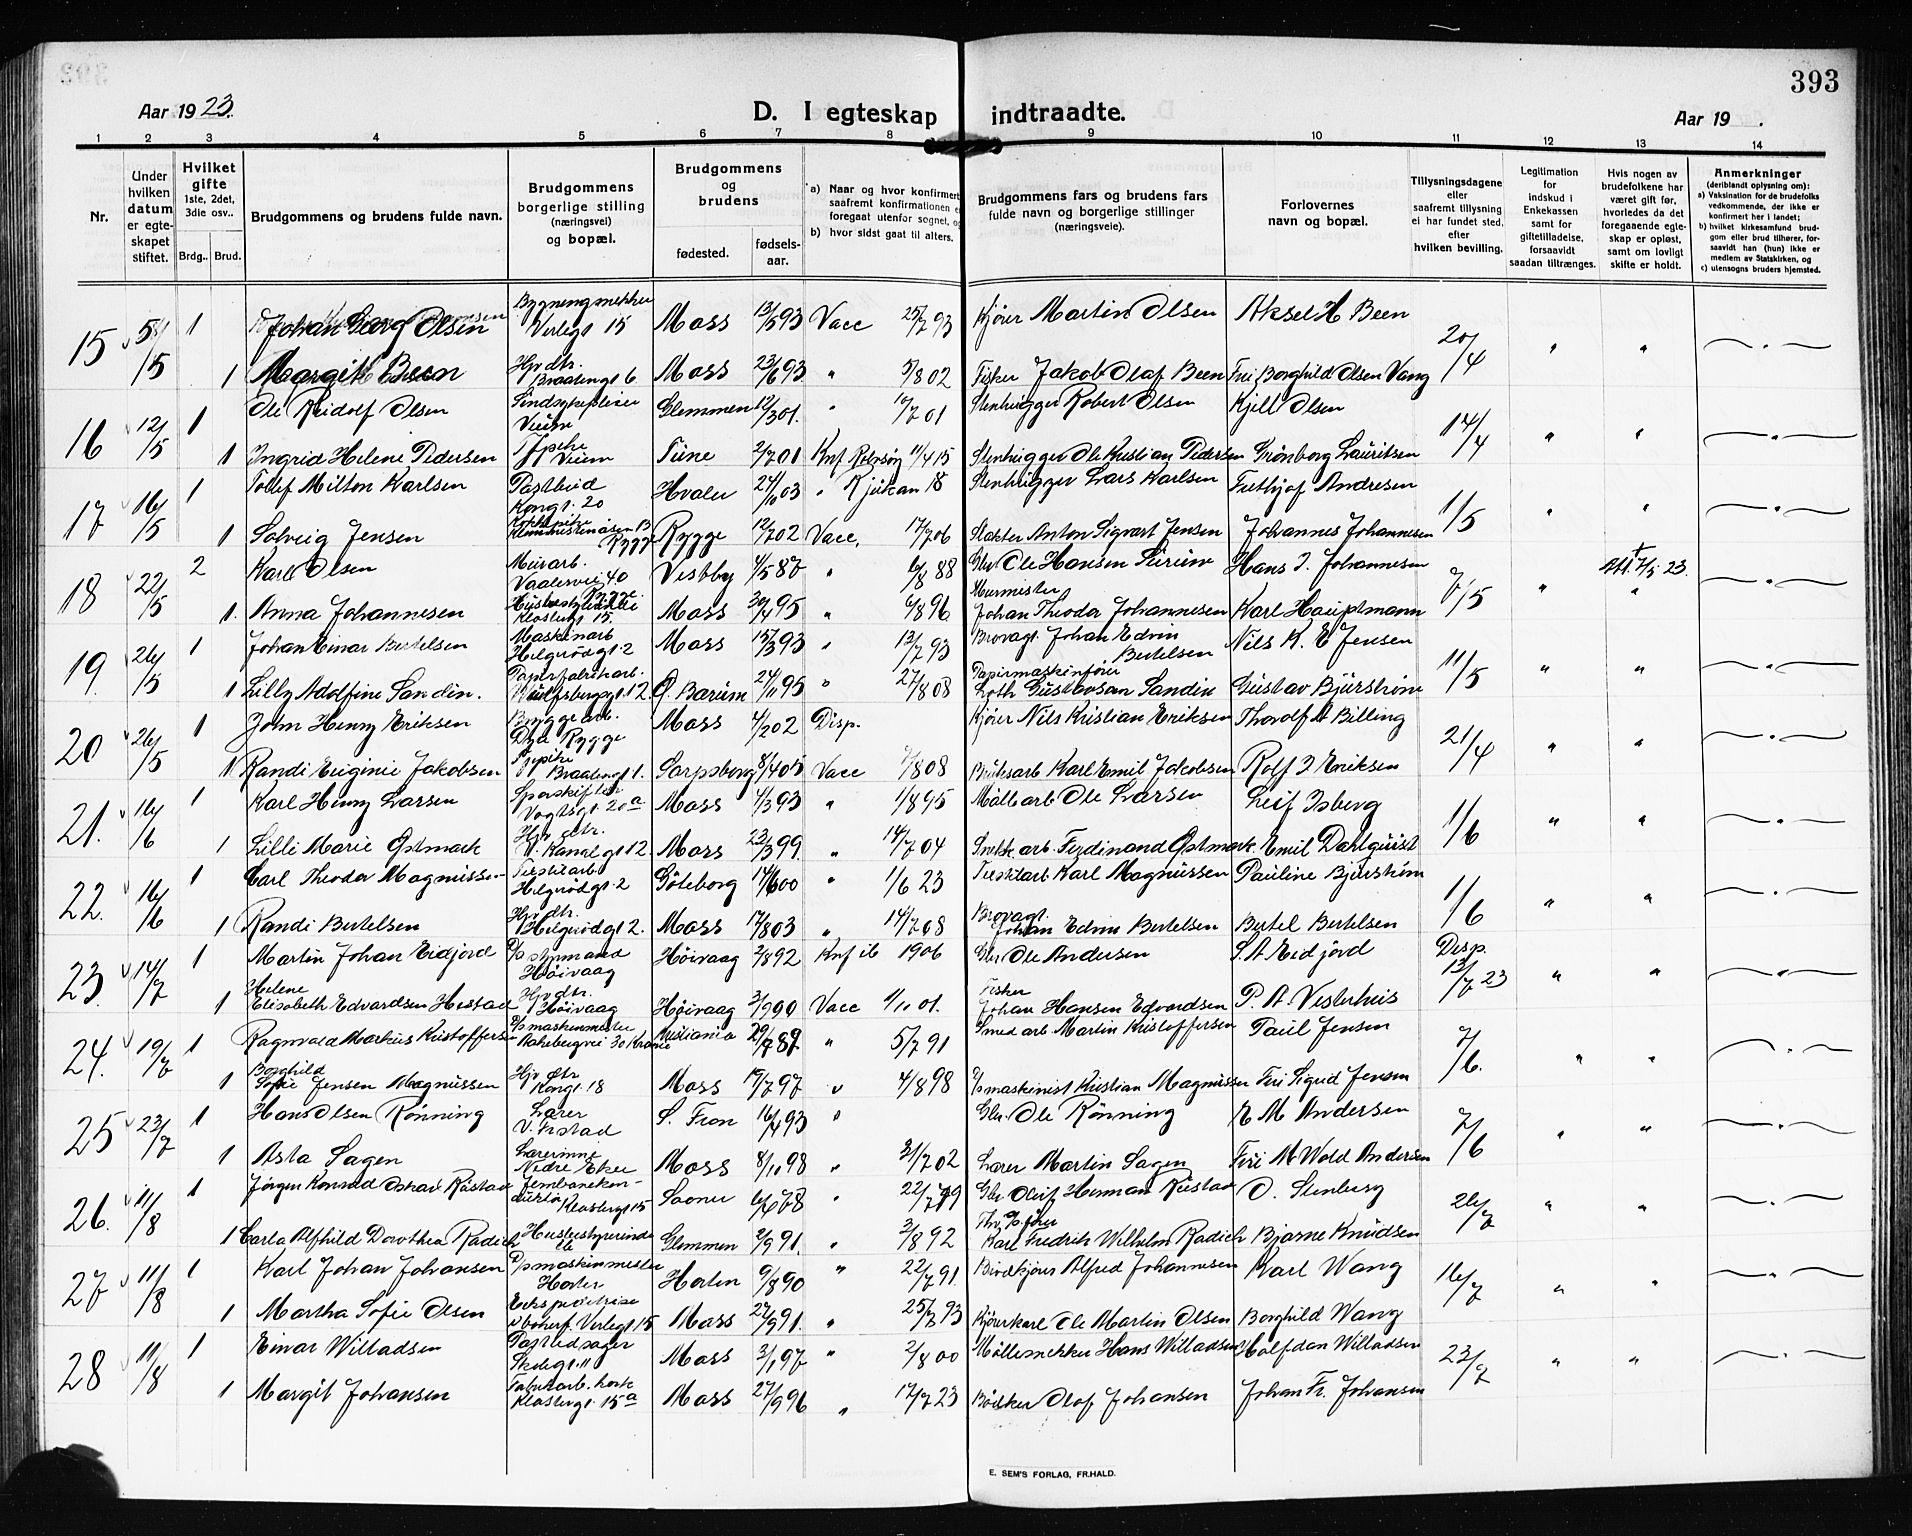 393
Aar 1923.
D. I egteskap indtraadte.
Aar 19 .
1 2 3 4 5 6 7 8 9 10 11 12 13 14
Nr.
Under hvilken datum er egteskapet stiftet.
Hvilket gifte 1ste, 2det, 3die osv..
Brdg.. Brud.
Brudgommens og brudens fulde navn.
Brudgommens borgerlige stilling (næringsvei) og bopæl.
Brudgommens og brudens
fødested. fødselsaar.
a) Naar og hvor konfirmert
saafremt konfirmationen
foregaat utenfor sognet,
b) hvor sidst gaat til alters.
Brudgommens fars og brudens fars fulde navn og borgerlige stillinger (næringsveie).
Forlovernes navn og bopæl.
Tillysningsdagene eller saafremt tillysning ei har fundet sted, efter hvilken bevilling.
Legitimation for indskud i Enkekassen samt for giftetilladelse, forsaavidt saadan tiltrænges.
Hvis nogen av brudefolkene har været gift før, hvorledes da det foregaaende egteskap er opløst, samt om lovligt skifte er holdt.
Anmerkninger (deriblandt oplysning om):
a) Vaksination for de brudefolks vedkommende, der ikke er konfirmert her i landet;
b) hvilket kirkesamfund brudgom eller brud tilhører, forsaavidt han (hun) ikke er medlem av Statskirken, og
c) utensogns bruders hjemsted.
15 5/5 1 Johan Olsen Verlegt 15 Moss 13/5 93 Vacc 25/7 93 Kjører Martin Olsen Aksel H Been 20/4
1 Margit Been Hjv dtr. Braatengt 6 Moss 23/6 93 " 3/8 02 Fisker Jakob Olaf Been Fru Borghild Olsen Vang
16 12/5 1 Ole Reidolf Olsen Glemmen 12/3 01. " 10/7 01 Stenhugger Robert Olsen Kjell Olsen 14/4
1 Ingrid Helene Pedersen Tune 2/7 01 Knf 11/4 15 Stenhugger Ole Kristian Pedersen Grönborg Lauritsen
17 16/5 1 Milton Karlsen Postbud Kongst. 20 Hvaler 24/10 03 " Rjukan 18 Stenhugger Lars Karlsen Frithjof Andresen 1/5
1 Solveig Jensen Rygge Rygge 12/7 02 Vacc. 17/7 06 Slakter Anton Sigvart Jensen Johannes Johannesen
18 22/5 2 Karl Olsen Murarb. Vaalervei 40 Rygge Vestby 4/5 87 " 6/8 88 Ole Hansen Hans J. Johannesen 7/5
1. Anna Johannesen Klostergt 15. Moss 30/4 95 " 6/8 96 Murmester Johan Theodor Johannesen Karl Hauptmann
19. 26/5 1 Johan Einar Bertelsen Maskinarb Helgerødgt. 2 Moss 15/3 93 " 13/7 93 Brovagt. Johan Edvin Bertelsen Nils K. E Jensen 11/5
1 Lilly Adolfine Sandin. Papirfabrikarb. Wulfsbergsgt 12. Ö. Bærum 24/11 95 " 27/8 08 Papirmaskinfører Loth Gustavson Sandin Gustav Bjurstrøm
20 26/5 1 John Henry Eriksen Bryggearb. Rygge Moss 4/2 02 Disp. Kjører Nils Kristian Eriksen Thorolf A Billing 21/4
1 Randi Euginie Jakobsen Braatengt 1. Sarpsborg 8/4 05 Vacc 7/8 08 Bruksarb Karl Emil Jakobsen Rolf J Eriksen
21. 16/6 1 Karl Henry Larsen Sporskifter Vogtsgt. 20 a Moss 4/3 93 " 1/8 95 Möllearb Ole Larsen Leif Isberg 1/6
1 Lilli Marie Østmark Hjv dtr. N. Kanalgt 12. Moss 23/3 99. " 14/7 04 Snekk.arb. Ferdinand Østmark. Emil Dahlquist
22. 16/6 1 Carl Theodor Magnussen Helgerødgt. 2 Göteborg 14/6 00 " 1/6 23 Karl Magnussen Pauline Bjurstrøm 1/6
1 Randi Bertelsen Hjv dtr. Helgerødgt 2. Moss 17/8 03 " 14/7 08 Brovagt. Johan Edvin Bertelsen Bertel Bertelsen
23. 14/7 1 Martin Johan Eidjord D/s styrmand Høivaag Høivaag 2/8 92 Knf ib 1906 Gbr Ole Andersen S. A. Eidjord Disp. 13/7 23
1 Helene Elisabeth Edvardsen Hestad Hjv dtr. Høivaag Høivaag 3/9 00 Vacc 1/11 01. Fisker Johan Hansen Edvardsen P. A. Vesterhus
24. 19/7 1 Ragnvald Markus Kristoffersen D/s maskinmester Akebergvei 30 Kr.ania Kristiania 29/7 87 " 5/7 91 Smed arb Martin Kristoffersen Paul Jensen 7/6.
1 Borghild Sofie Jensen Magnussen Hjv dtr Kongst. 18 Moss 19/7 97 " 4/8 98 D/s maskinist Kristian Magnussen Fru Sigrid Jensen
25 23/7 1 Hans Olsen Rønning Lærer S. Fron 16/4 93 " Gbr. Ole Rønning E M Andersen 7/6
1 Asta Sagen Lærerinne Nedre Eker Moss 8/11 98 " 31/7 02 Lærer Martin Sagen Fru M Wold Andersen
26. 11/8 1 Jørgen Konrad Oskar Rustad Jernbanekonduktør Klostergt 15 " 22/7 79 Gbr. Herman Rustad O. Stenberg 26/7
1 Carla Alfhild Dorothea Radich Husbestyrerinde Glemmen 2/9 91. " 3/8 92 Karl Fredrik Wilhelm Radich Bjarne Knudsen
27 11/8 1 Karl Johan Johansen D/s maskinmester Horten Horten 9/8 90 " 22/7 91. Alfred Johannesen Karl Wang 16/7
1 Martha Sofie Olsen Verlegt 15 Moss 27/9 91. " 25/7 93 Kjørerkarl Ole Martin Olsen Borghild Wang
28 11/8 1 Einar Willadsen Skolegt. 11 Moss 3/1 97 " 2/8 00 Möllesnekker Hans Willadsen Halfdan Willadsen 23/7
1 Margit Johansen Klostergt. 15 a Moss 27/9 96 " 17/7 23 Bødker Olof Johansen Johan Fr. Johansen
E. SEM'S FORLAG, FR.HALD.